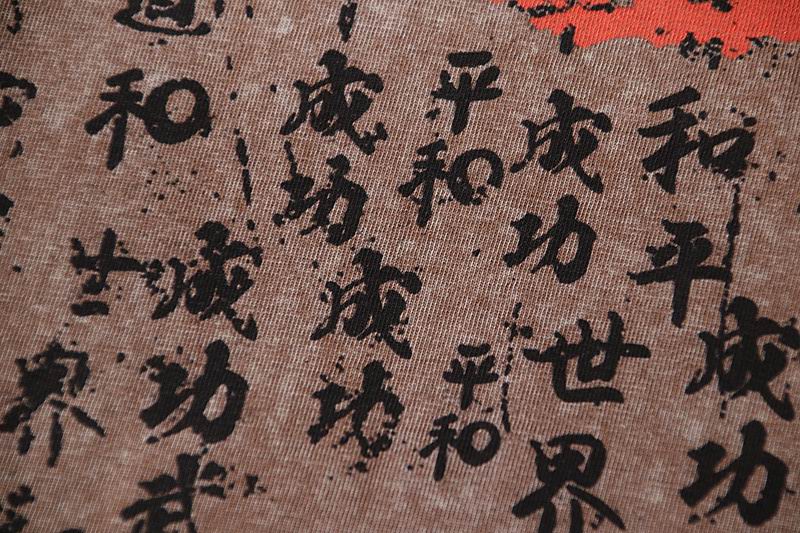 成功
和平
成功
世界
平和
平和
成功
成功
和
成功武
界